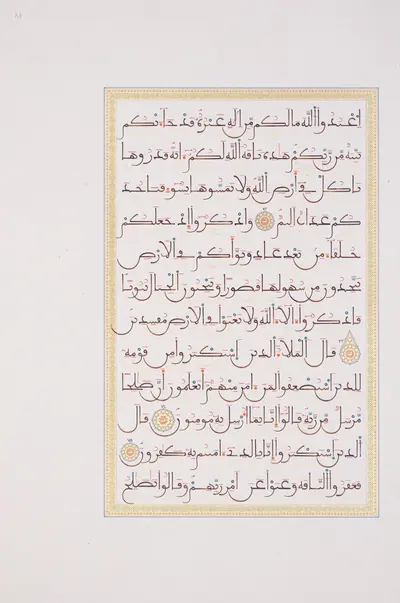 اعبدوا الله مالكم من اله غيره قد جاءتكم
بينة من ربكم هذه ناقة الله لكم ءاية فذروها
تاكل في أرض الله ولا تمسوها بسوء فياخذ
كم عذاب اليم واذكروا إذ جعلكم
خلفاء من بعد عاد وبوأكم في الارض
تتخذون من سهولها قصورا وتنحتون الجبال بيوتا
فاذكروا ءالاء الله ولا تعثوا في الارض مفسدين
قال الملأ الذين استكبروا من قومه
للذين استضعفوا لمن ءامن منهم أتعلمون أن صلحا
مرسل من ربه قالوا إنا بما أرسل به مومنون قال
الذين استكبروا إنا بالذي ءامنتم به كفرون
فعقروا الناقة وعتوا عن أمر ربهم وقالوا يصلح